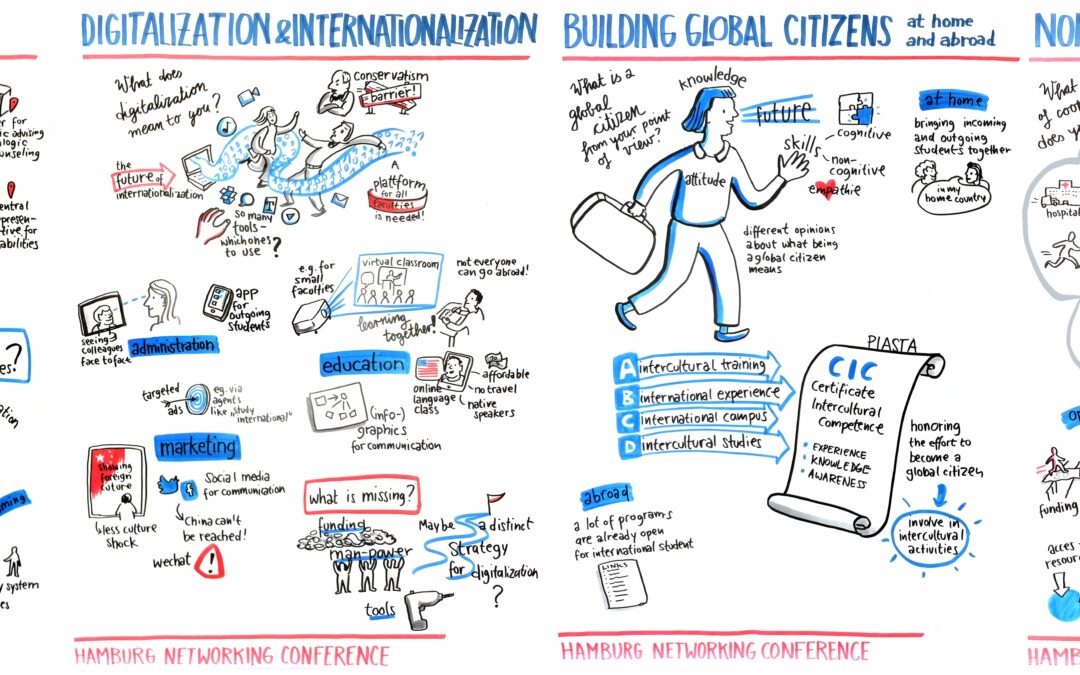 r for
ic advising
logic
unseling
entral
presen-
tive for
abilities
?
es?
ation
ming
y system
es
DIGITALIZATION & INTERNATIONALIZATION
What does
digitalization
mean to you?
conservatism
barrier!
the
future of
internationalization
???
A
platform
for all
faculties
is needed!
so many
tools -
which ones
to use?
seeing
colleagues
face to face
app
for
outgoing
students
administration
e.g. for
small
faculties
virtual classroom
learning
together!
not everyone
can go abroad!
education
online
language
class
affordable
no travel
native
speakers
targeted
ads
eg. via
agents
like "study
international"
(info-)
graphics
for communication
marketing
showing
foreign
culture
less culture
shock
Social media
for communication
China can't
be reached!
wechat
!
what is missing?
funding
man-power
tools
Maybe a distinct
Strategy
for digitalization
?
HAMBURG NETWORKING CONFERENCE
BUILDING GLOBAL CITIZENS at home
and abroad
What is a
global
citizen
from your point
of view?
knowledge
future
skills
cognitive
non-
cognitive
empathie
attitude
different opinions
about what being
a global citizen
means
at home
bringing incoming
and outgoing
students together
in my
home country
A intercultural training
B international experience
C international campus
D intercultural studies
PIASTA
CIC
Certificate
Intercultural
Competence
• EXPERIENCE
• KNOWLEDGE
• AWARENESS
honoring
the effort to
become a
global citizen
involve in
intercultural
activities
abroad
a lot of programs
are already open
for international student
LINKS
HAMBURG NETWORKING CONFERENCE
NO
What
of coo
does y
hospital
funding
acces
resour
HAMB